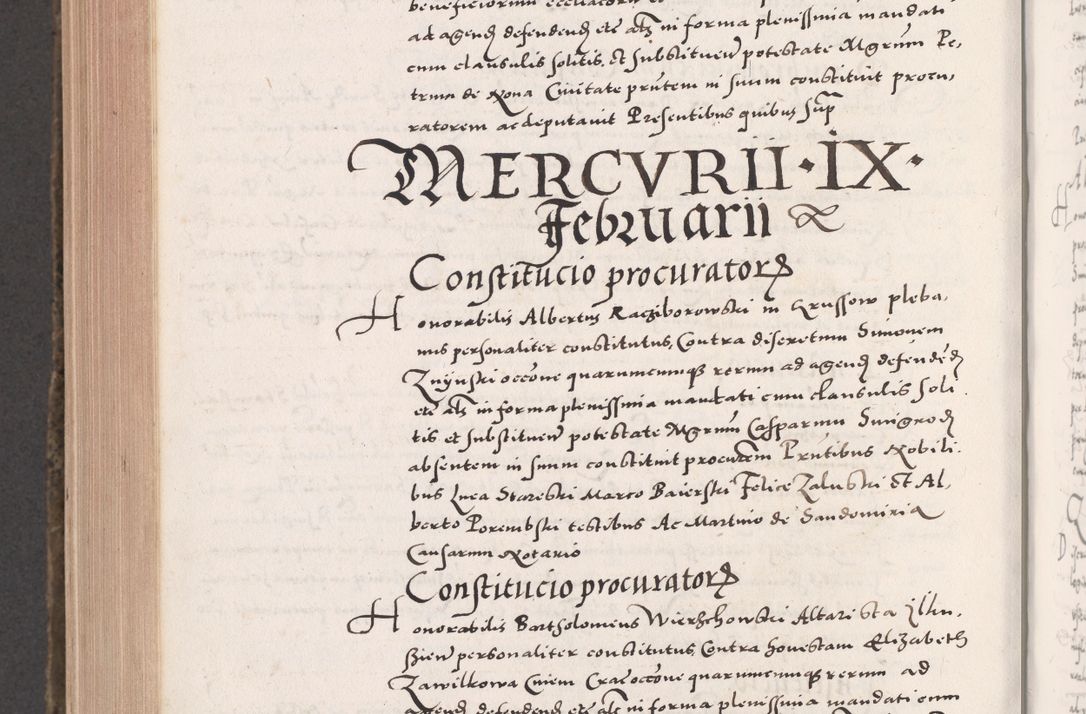 ad agend defendend etc als in forma plenissima mandati
cum clausulis solitis, et substituen potestate Mgrum Pe,
trum de Xona Civitate prntem in suum constituit procu,
ratorem ac deputavit Presentibus quibus sup
MERCVRII · IX ·
Februarii
Constitucio procurator
Honorabilis Albertus Racziborowski in Krussow pleba,
nus personaliter constitutus, Contra discretum Simonem
Znynski occone quarumcumque rerum ad agend defended
etc als in forma plenissima mandati cum clausulis soli
tis et substituen potestate Mgrum Casparum Snigrod
absentem in suum constituit procutem Prntibus Nobili.
bus Luca Starebski Marco Baierski Felice Zaluski et Al,
berto Porembski testibus Ac Martino de Sandomiria
Causarum Notario
Constitucio procurator
Honorabilis Bartholomeus Wierzchowski Altarista Illku,
szien personaliter constitutus, Contra honestam Elizabeth
Zawilkowa Ciuem Crac occone quarumcumque rerum ad
agend defendend etc als in forma plenissima mandati cum